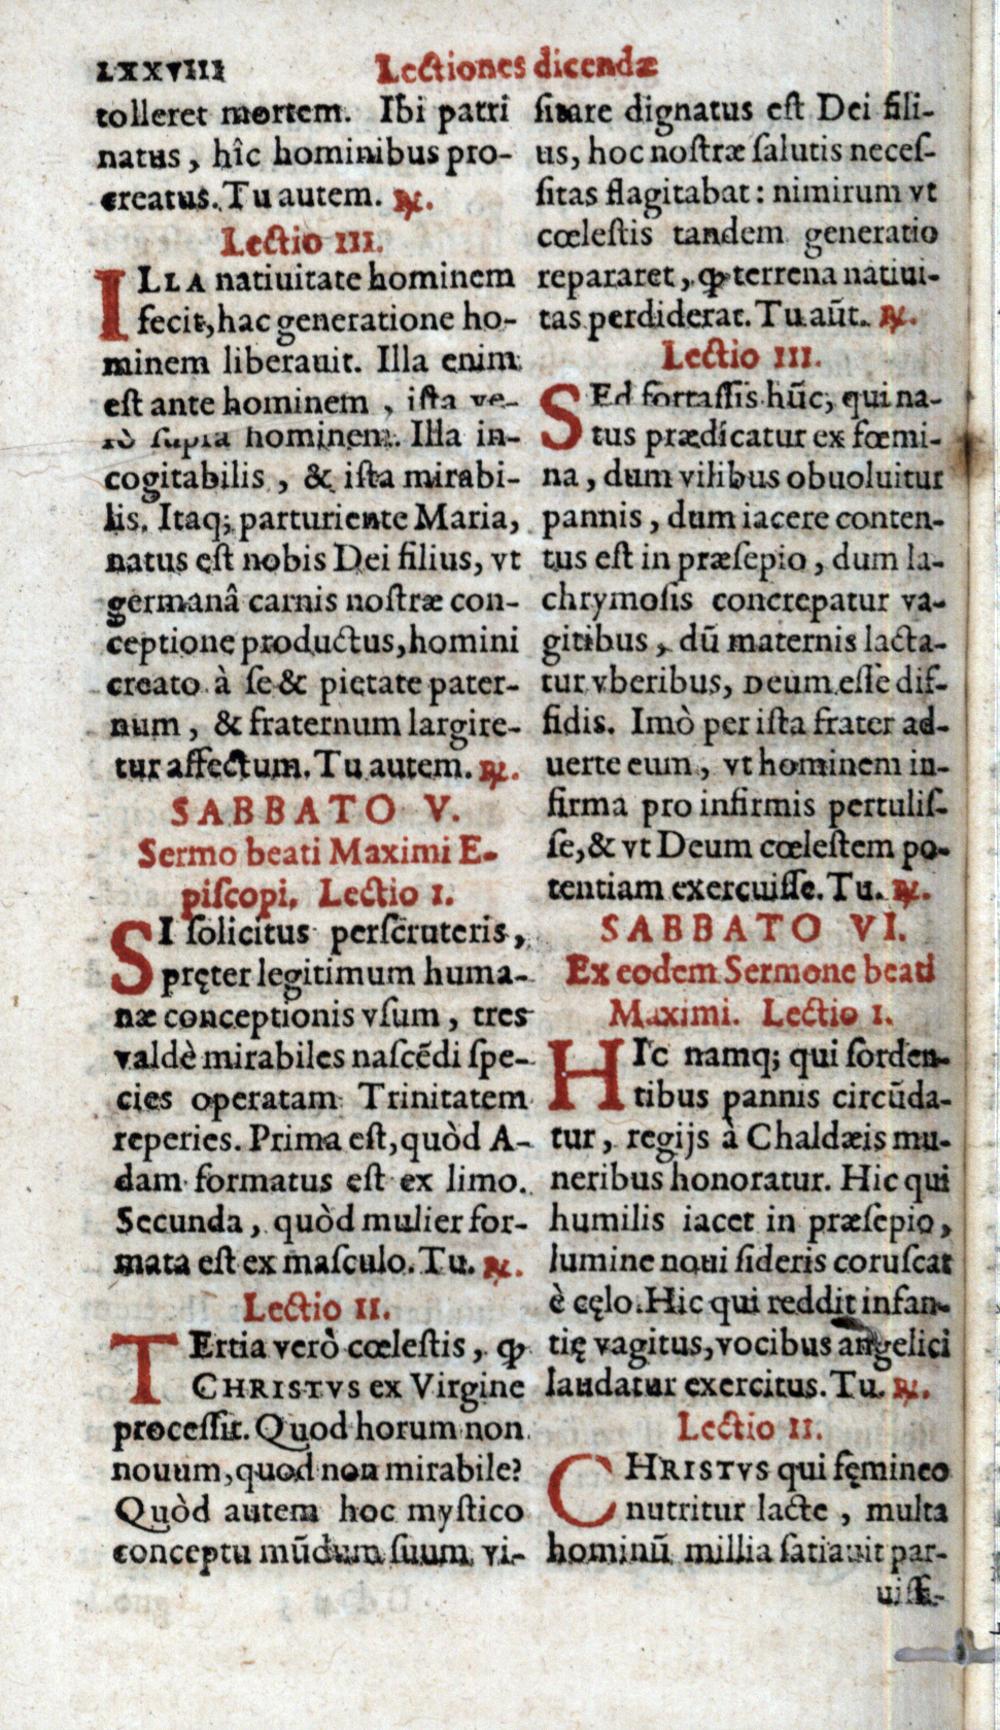 LXXVIII
Lectiones dicendæ
tolleret mortem. Ibi patri
natus, hîc hominibus pro-
creatus. Tu autem. ℟.
Lectio III.
ILLA natiuitate hominem
fecit, hac generatione ho-
minem liberauit. Illa enim
est ante hominem, ista ve-
rò supra hominem. Illa in-
cogitabilis, & ista mirabi-
lis. Itaq; parturiente Maria,
natus est nobis Dei filius, vt
germanâ carnis nostræ con-
ceptione productus, homini
creato à se & pietate pater-
num, & fraternum largire-
tur affectum. Tu autem. ℟.
SABBATO V.
Sermo beati Maximi E-
piſcopi. Lectio I.
SI ſolicitus perſcruteris,
pręter legitimum huma-
næ conceptionis vſum, tres
valdè mirabiles naſcẽdi ſpe-
cies operatam Trinitatem
reperies. Prima eſt, quòd A-
dam formatus eſt ex limo.
Secunda, quòd mulier for-
mata eſt ex maſculo. Tu. ℟.
Lectio II.
TErtia verò cœleſtis, ꝙ
CHRISTVS ex Virgine
proceſſit. Quod horum non
nouum, quod non mirabile?
Quòd autem hoc myſtico
conceptu mũdum ſuum vi-
ſitare dignatus eſt Dei fili-
us, hoc noſtræ ſalutis neceſ-
ſitas flagitabat: nimirum vt
cœleſtis tandem generatio
repararet, ꝙ terrena natiui-
tas perdiderat. Tu aũt. ℟.
Lectio III.
SEd fortaſſis hũc, qui na-
tus prædicatur ex fœmi-
na, dum vilibus obuoluitur
pannis, dum iacere conten-
tus eſt in præſepio, dum la-
chrymoſis concrepatur va-
gitibus, dũ maternis lacta-
tur vberibus, Deum eſſe dif-
fidis. Imò per iſta frater ad-
uerte eum, vt hominem in-
firma pro infirmis pertuliſ-
ſe, & vt Deum cœleſtem po-
tentiam exercuiſſe. Tu. ℟.
SABBATO VI.
Ex eodem Sermone beati
Maximi. Lectio I.
HIc namq; qui ſorden-
tibus pannis circũda-
tur, regijs à Chaldæis mu-
neribus honoratur. Hic qui
humilis iacet in præſepio,
lumine noui ſideris coruſcat
è cęlo. Hic qui reddit infan-
tię vagitus, vocibus angelici
laudatur exercitus. Tu. ℟.
Lectio II.
CHRISTVS qui fęmineo
nutritur lacte, multa
hominũ millia ſatiauit par-
uiſſi-